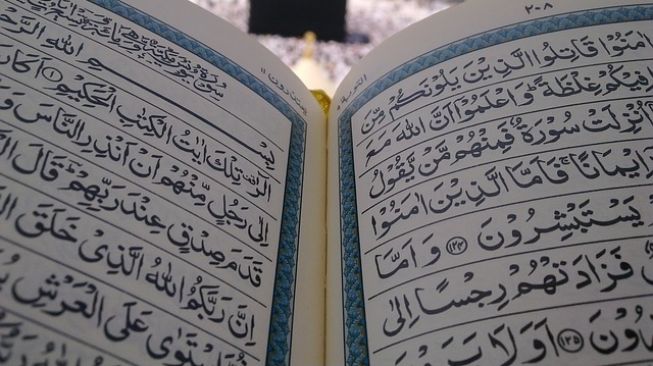 ٢٠٨
التوبة
اٰمَنُوْا قَاتِلُوا الَّذِيْنَ يَلُوْنَكُمْ مِّنَ
فِيْكُمْ غِلْظَةً ؕ وَاعْلَمُوْۤا اَنَّ اللّٰهَ مَعَ
اُنْزِلَتْ سُوْرَةٌ فَمِنْهُمْ مَّنْ يَّقُوْلُ
اِيْمَانًا ۚ فَاَمَّا الَّذِيْنَ اٰمَنُوْا
يَسْتَبْشِرُوْنَ ﴿١٢٤﴾ وَاَمَّا
فَزَادَتْهُمْ رِجْسًا اِلٰى
﴿١٢٥﴾ اَوَلَا يَرَوْنَ
يعتذرون ١١
بِسْمِ اللّٰهِ الرَّحْ
الٓرٰ ۟ تِلْكَ اٰيٰتُ الْكِتٰبِ الْحَكِيْمِ ﴿١﴾ اَكَانَ
اِلٰى رَجُلٍ مِّنْهُمْ اَنْ اَنْذِرِ النَّاسَ وَ
قَدَمَ صِدْقٍ عِنْدَ رَبِّهِمْ ؕ قَالَ الْ
اِنَّ رَبَّكُمُ اللّٰهُ الَّذِيْ خَلَقَ ال
اسْتَوٰى عَلَى الْعَرْشِ يُ